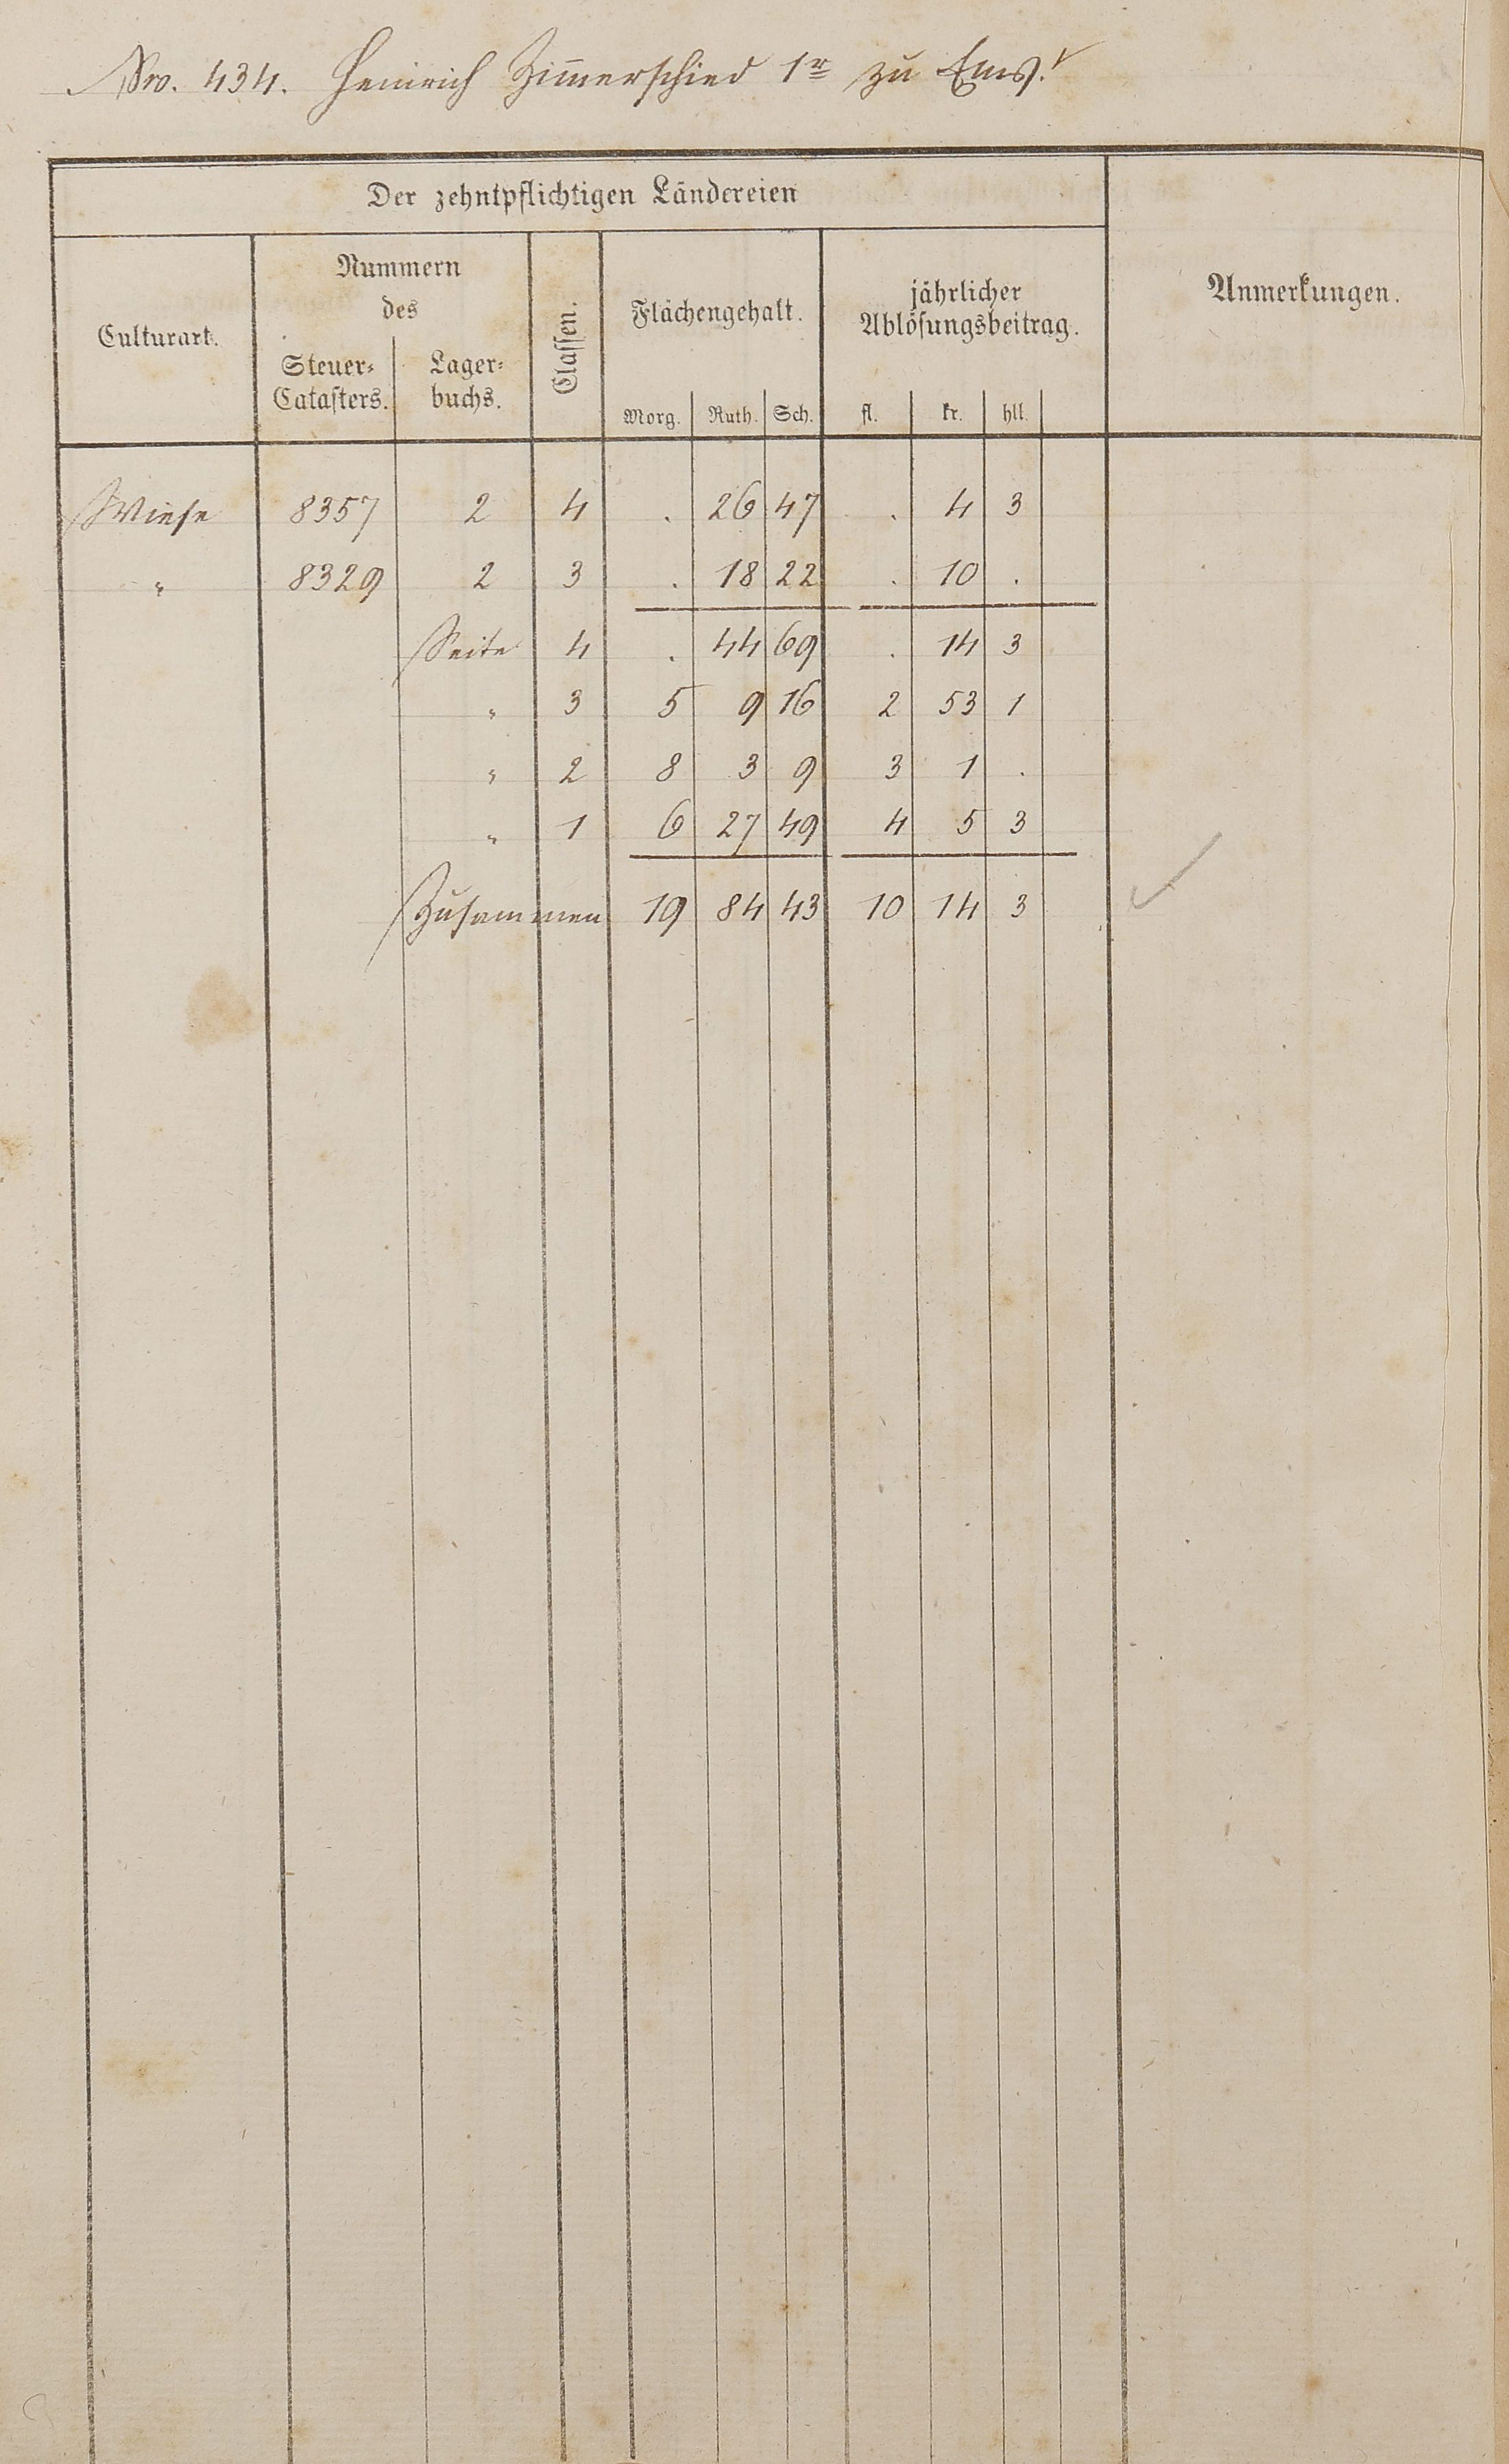 Nro. 434. Heinrich Zim̄erschied 1r zu Ems.
Der zehntpflichtigen Ländereien
Culturart.
Nummern
des
Steuer-
Catasters.
Lager-
buchs.
Classen.
Flächengehalt.
Morg. Ruth. Sch.
jährlicher
Ablösungsbeitrag.
fl. kr. hll.
Anmerkungen.
Wiese 8357 2 4 . 26 47 . 4 3
" 8329 2 3 . 18 22 . 10 .
Seite 4 . 44 69 . 14 3
" 3 5 9 16 2 53 1
" 2 8 3 9 3 1 .
" 1 6 27 49 4 5 3
Zusammen 19 84 43 10 14 3